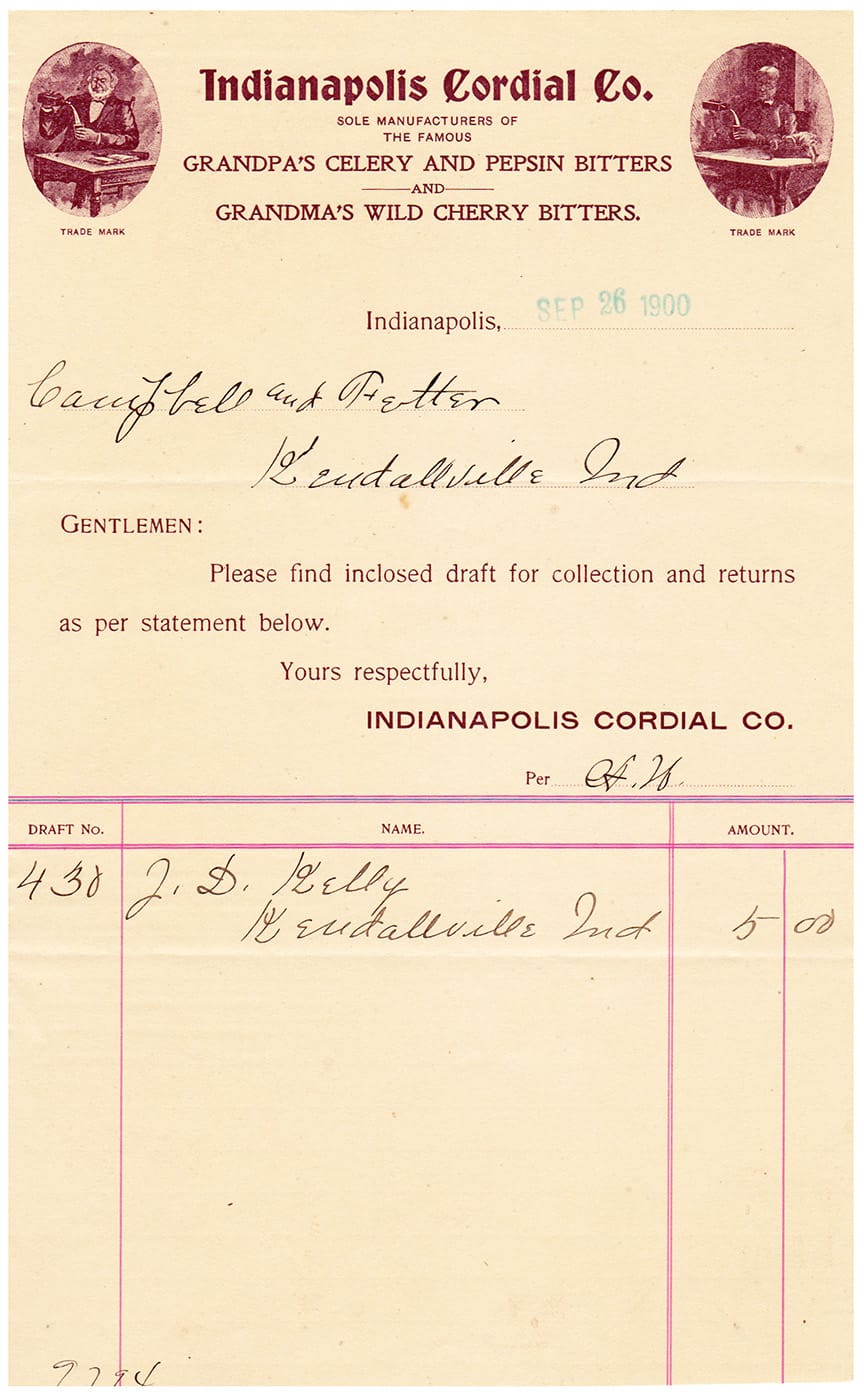 Indianapolis Cordial Co.
SOLE MANUFACTURERS OF
THE FAMOUS
GRANDPA'S CELERY AND PEPSIN BITTERS
AND
GRANDMA'S WILD CHERRY BITTERS.
TRADE MARK
TRADE MARK
Indianapolis, SEP 26 1900
Campbell and Fetter
Kendallville Ind
GENTLEMEN:
Please find inclosed draft for collection and returns
as per statement below.
Yours respectfully,
INDIANAPOLIS CORDIAL CO.
Per H.
DRAFT No. NAME. AMOUNT.
430 J. D. Kelly
Kendallville Ind 5 00